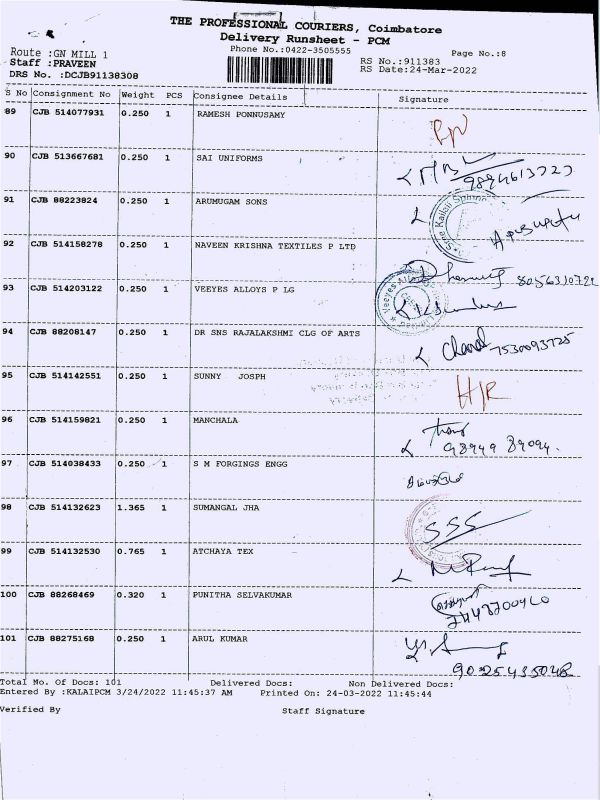 THE PROFESSIONAL COURIERS, Coimbatore
Delivery Runsheet - PCM
Phone No.:0422-3505555
Page No.:8
Route :GN MILL 1
Staff :PRAVEEN
DRS No. :DCJB91138308
RS No.:911383
RS Date:24-Mar-2022
S No Consignment No Weight PCS Consignee Details Signature
89 CJB 514077931 0.250 1 RAMESH PONNUSAMY
90 CJB 513667681 0.250 1 SAI UNIFORMS
91 CJB 88223824 0.250 1 ARUMUGAM SONS
92 CJB 514158278 0.250 1 NAVEEN KRISHNA TEXTILES P LTD
93 CJB 514203122 0.250 1 VEEYES ALLOYS P LG
94 CJB 88208147 0.250 1 DR SNS RAJALAKSHMI CLG OF ARTS
7530093725
95 CJB 514142551 0.250 1 SUNNY JOSPH
H/R
96 CJB 514159821 0.250 1 MANCHALA
98949 89094.
97 CJB 514038433 0.250 1 S M FORGINGS ENGG
98 CJB 514132623 1.365 1 SUMANGAL JHA
SSS
99 CJB 514132530 0.765 1 ATCHAYA TEX
100 CJB 88268469 0.320 1 PUNITHA SELVAKUMAR
101 CJB 88275168 0.250 1 ARUL KUMAR
Total No. Of Docs: 101 Delivered Docs: Non Delivered Docs:
Entered By :KALAIPCM 3/24/2022 11:45:37 AM Printed On: 24-03-2022 11:45:44
Verified By Staff Signature